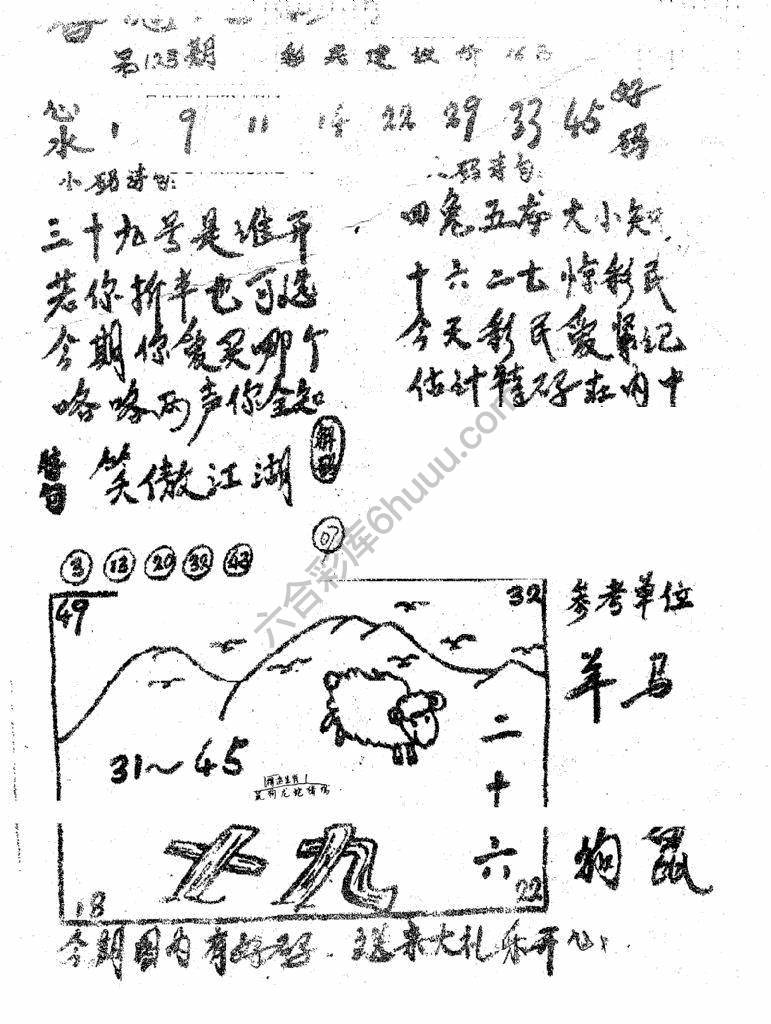 第123期 彩民建议价
心水 1 9 11 14 22 29 33 45 好码
小码诗句:
三十九号是谁开
若你折半也可选
今期你爱买哪个
咯咯两声你全知
码诗句:
四兔五龙大小知
十六二七惊彩民
今天彩民爱紧记
估计特码在内中
特句 笑傲江湖 解码
07
3 13 20 32 43
49 32
参考单位
羊马
31~45
二十六
七九
狗鼠
18 22
今期图内有好码.送来大礼乐开心
六合彩库6huuu.com